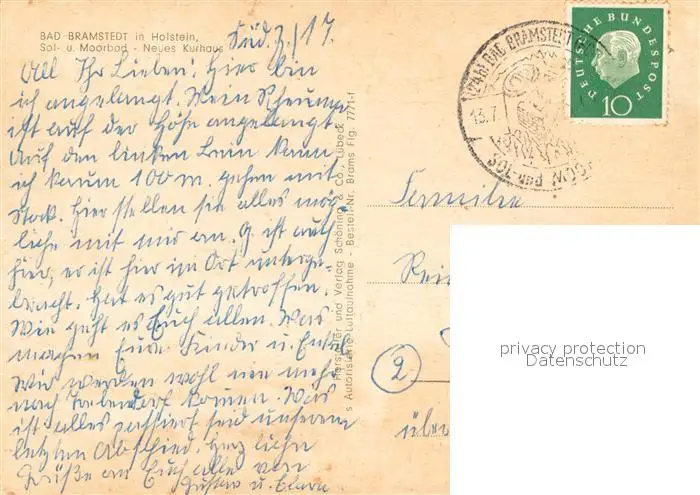 BAD BRAMSTEDT in Holstein,
Sol- u. Moorbad - Neues Kurhaus
All Ihr Lieben! Hier bin
ich angelangt. Mein Rheuma
ist auf der Höhe angelangt
Auf den linken Bein kann
ich kaum 100 m. gehen mit
Stock. Hier stellen sie alles mög-
liche mit mir an. G. ist auch
hier, er ist hier im Ort unterge-
bracht. Hat es gut getroffen.
Wie geht es Euch allen. Was
machen Eure Kinder u. Enkel
Wir werden wohl nie mehr
nach kommen. Was
ist alles passiert seid unserem
letzten Abschied. Herzliche
Grüße an Euch alle von
Gustav u.
Hersteller und Verlag Schöning & Co., Lübeck
Autorisierte Luftaufnahme - Bestell-Nr. Brams Flg. 7771-f
BAD BRAMSTEDT
13.7.
SOL- und
DEUTSCHE BUNDESPOST
10
Familie
Rei
2
über
privacy protection
Datenschutz